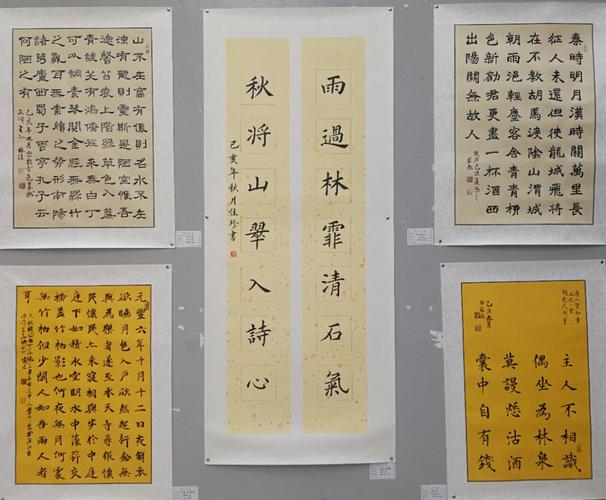 山不在高有僊則名水不在
深有龍則靈斯是陋室惟吾
德馨苔痕上階綠草色入簾
青談笑有鴻儒往來無白丁
可以調素琴閱金經無絲竹
之亂耳無案牘之勞形南陽
諸葛廬西蜀子雲亭孔子云
何陋之有
雨過林霏清石氣
秋將山翠入詩心
己亥年秋月佳珍書
秦時明月漢時關萬里長
征人未還但使龍城飛將
在不教胡馬渡陰山渭城
朝雨浥輕塵客舍青青栁
色新勸君更盡一杯酒西
出陽關無故人
元豐六年十月十二日夜解衣
欲睡月色入戶欣然起行念無
與為樂者遂至承天寺尋張懷
民懷民亦未寢相與步於中庭
庭下如積水空明水中藻荇交
橫蓋竹柏影也何夜無月何處
無竹柏但少閑人如吾兩人者
主人不相識
偶坐為林泉
莫謾愁沽酒
囊中自有錢